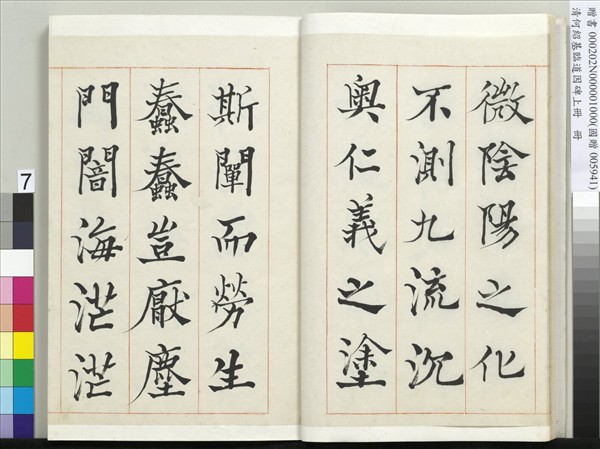 微陰陽之化
不測九流沉
奧仁義之塗
斯闡而勞生
蠢蠢豈厭塵
門闇海茫茫
7
贈書 000202N000001000(國贈 005941)
清何紹基臨道因碑上冊 冊